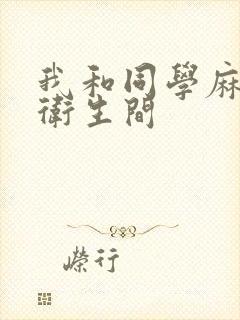 我和同學麻
衛生間
嶸行